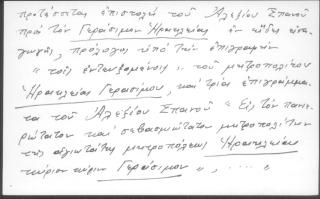 προτάσσεται ἐπιστολὴ τοῦ Ἀλεξίου Σπανοῦ
πρὸς τὸν Γεράσιμον Ἡρακλείας ἐν εἴδει εἰσα-
γωγῆς, πρόλογος ὑπὸ τὴν ἐπιγραφὴν
"τοῖς ἐντευξομένοις", τοῦ μητροπολίτου
Ἡρακλείας Γερασίμου, καὶ τρία ἐπιγράμμα-
τα τοῦ Ἀλεξίου Σπανοῦ "Εἰς τὸν πανιε-
ρώτατον καὶ σεβασμιώτατον μητροπολίτην
τῆς ἁγιωτάτης μητροπόλεως Ἡρακλείας
κύριον κύριον Γεράσιμον", ..... "